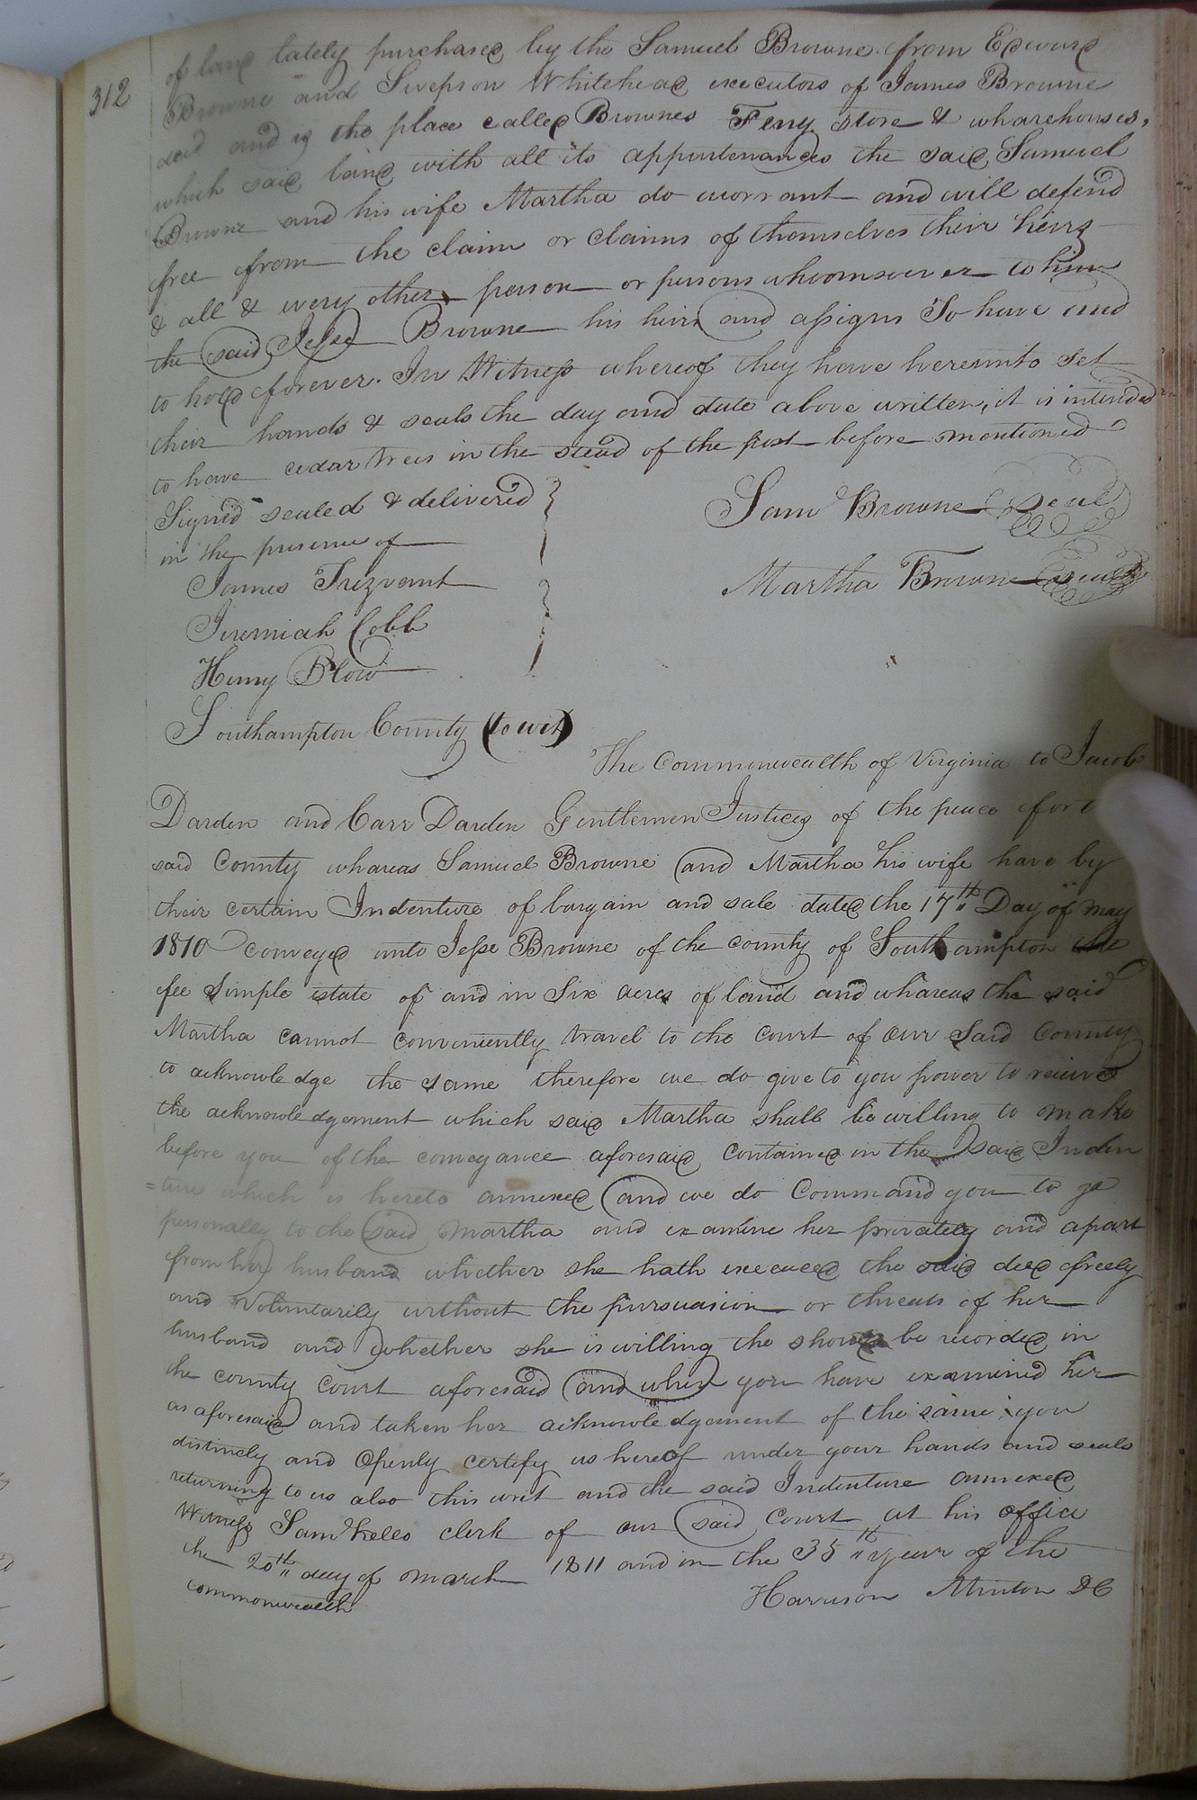 312
of land lately purchased by the Samuel Browne from Edward
Browne and Swepson Whitehead executors of James Browne
decd and is the place called Brownes Ferry store & wharehouses,
which said land with all its appurtenances the said Samuel
Browne and his wife Martha do worrant and will defend
free from the claim or claims of themselves their heirs
& all & every other person or persons whoomsoever to him
the said Jesse Browne his heirs and assigns To have and
to hold forever. In Witness whereof they have hereunto set
their hands & seals the day and date above written, it is intended
to have cedar trees in the stead of the post before mentioned
Signd sealed & delivered
in the presence of
James Trezvant
Jeremiah Cobb
Henry Blow
Sam Browne seal
Martha Browne seal
Southampton County (to wit)
The Commonwealth of Virginia to Jacob
Darden and Carr Darden Gentlemen Justices of the peace for
said County whareas Samuel Browne and Martha his wife have by
their certain Indenture of bargain and sale dated the 17th Day of may
1810 conveyed unto Jesse Browne of the county of Southampton the
fee simple istate of and in Six acres of land and whareas the said
Martha cannot conveniently travel to the court of our Said County
to acknowledge the same therefore we do give to you power to receive
the acknowledgement which said Martha shall be willing to make
before you of the conveyance aforesaid contained in the said Inden
=ture which is hereto annexed and we do Command you to go
personally to the said Martha and examine her privately and apart
from her husband whether she hath executed the said deed freely
and Voluntarily without the pursuasion or threats of her
husband and whether she is willing the should be recorded in
the county court aforesaid and when you have examined her
as aforesaid and taken her acknowledgement of the same you
distinctly and Openly certify us hereof under your hands and seals
returning to us also this writ and the said Indenture annexed
Witness Saml Kello clerk of our said court at his office
the 20th day of march 1811 and in the 35th year of the
commonwealth
Harrison Minton DC